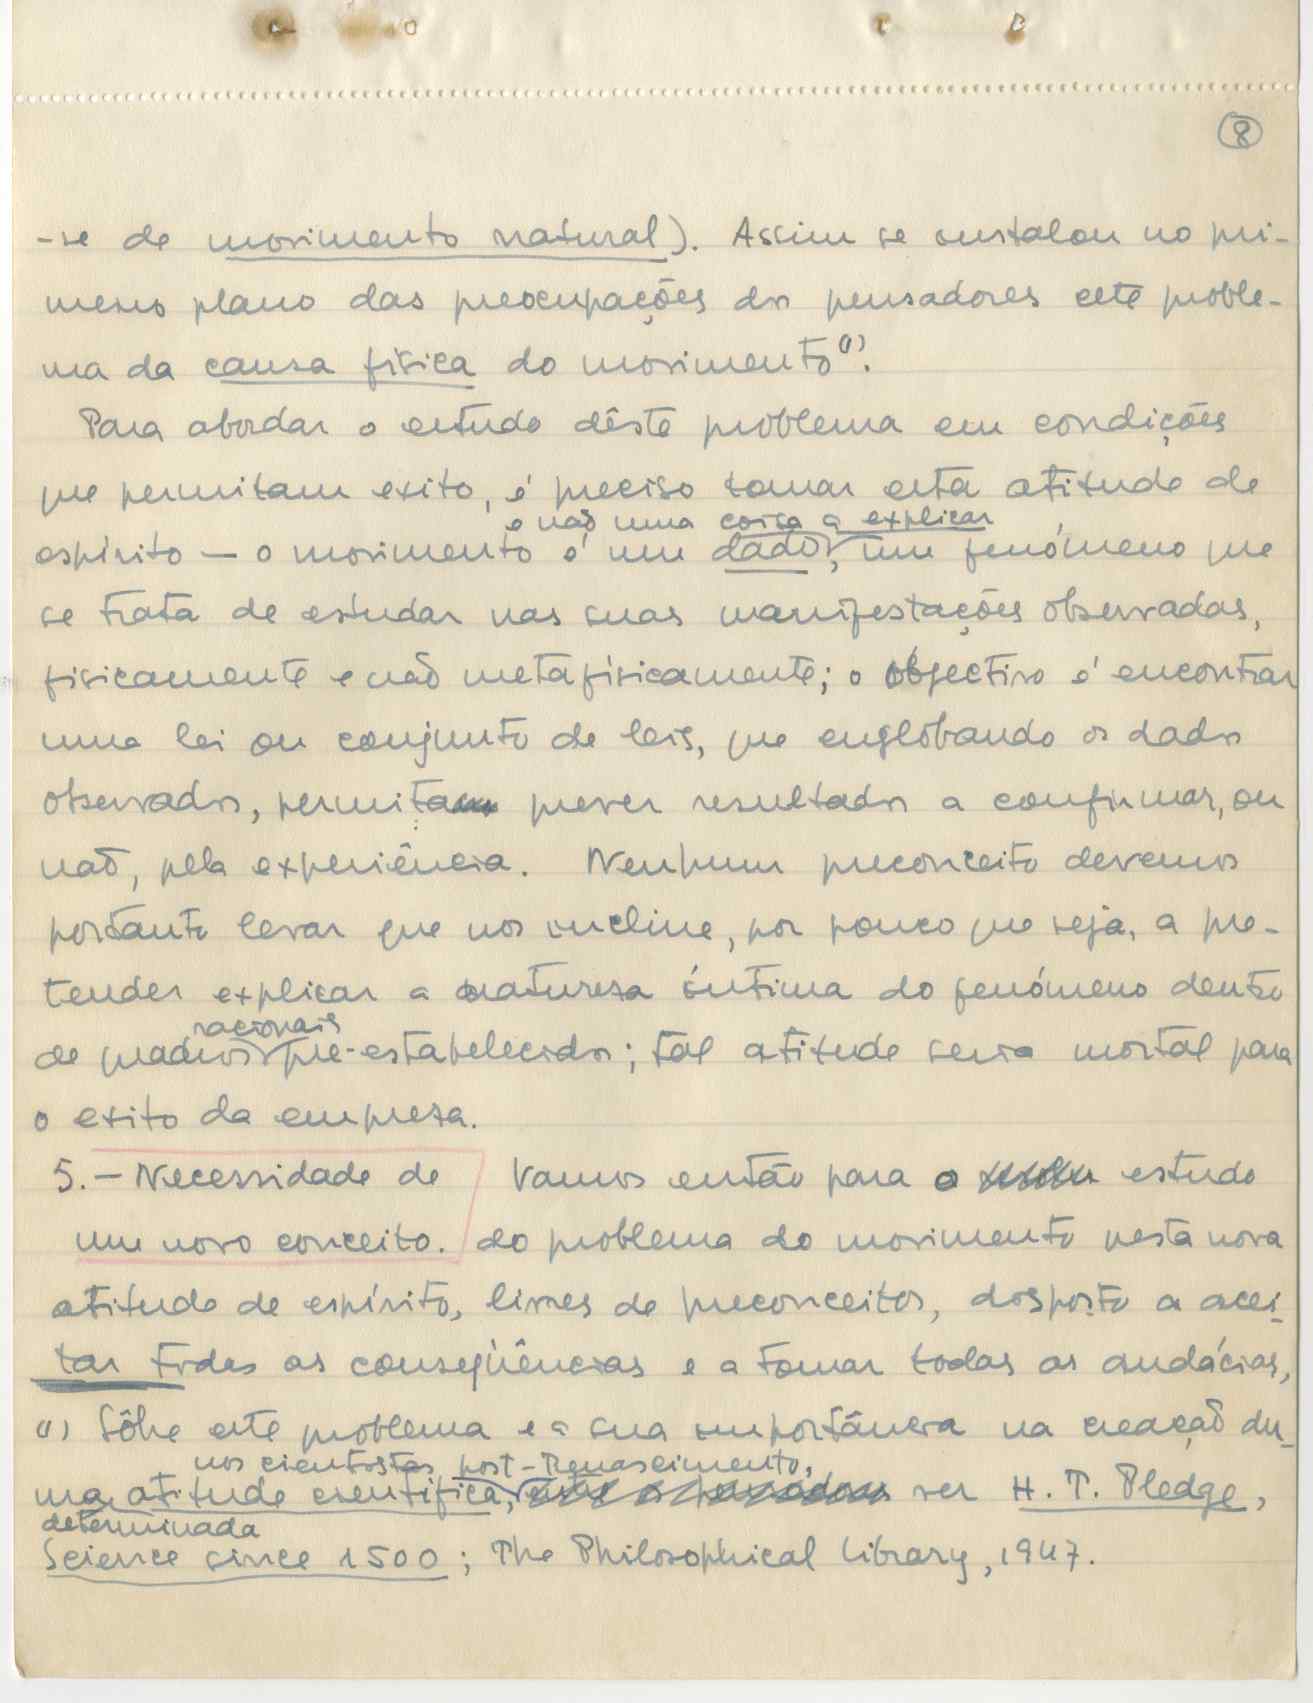 8
-se de movimento natural). Assim se instalou no pri-
meiro plano das preocupações dos pensadores este proble-
ma da causa física do movimento(1).
Para abordar o estudo dêste problema em condições
que permitam exito, é preciso tomar esta atitude de
e não uma coisa a explicar
espírito — o movimento é um dado, um fenómeno que
se trata de estudar nas suas manifestações observadas,
fisicamente e não metafísicamente; o objectivo é encontrar
uma lei ou conjunto de leis, que englobando os dados
observados, permita prever resultados a confirmar, ou
não, pela experiência. Nenhum preconceito devemos
portanto levar que nos incline, por pouco que seja, a pre-
tender explicar a natureza íntima do fenómeno dentro
racionais
de quadros pre-estabelecidos; tal atitude seria mortal para
o exito da empresa.
5. — Necessidade de Vamos então para o estudo
um novo conceito. do problema do movimento nesta nova
atitude de espírito, livres de preconceitos, disposto a acei-
tar todas as conseqüências e a tomar todas as audácias,
(1) Sôbre este problema e a sua importância na creação du-
nos cientistas post-Renascimento,
ma atitude científica, ver H. T. Pledge,
determinada
Science since 1500; The Philosophical Library, 1947.